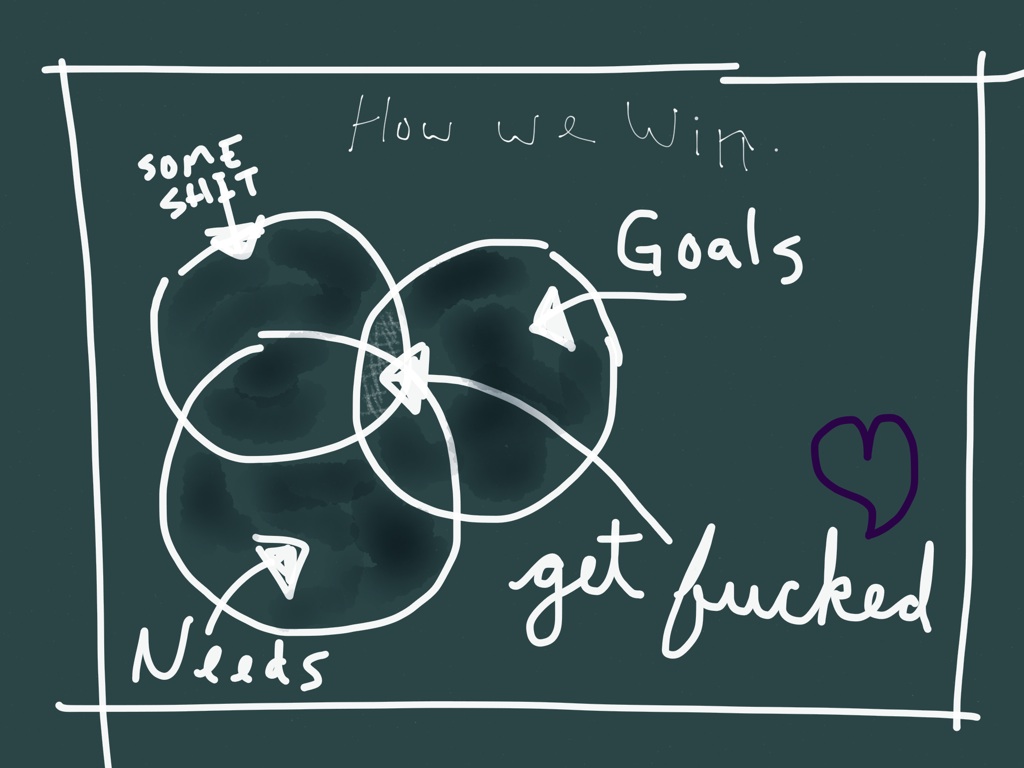 How we Win.
SOME
SHIT
Goals
get fucked
Needs